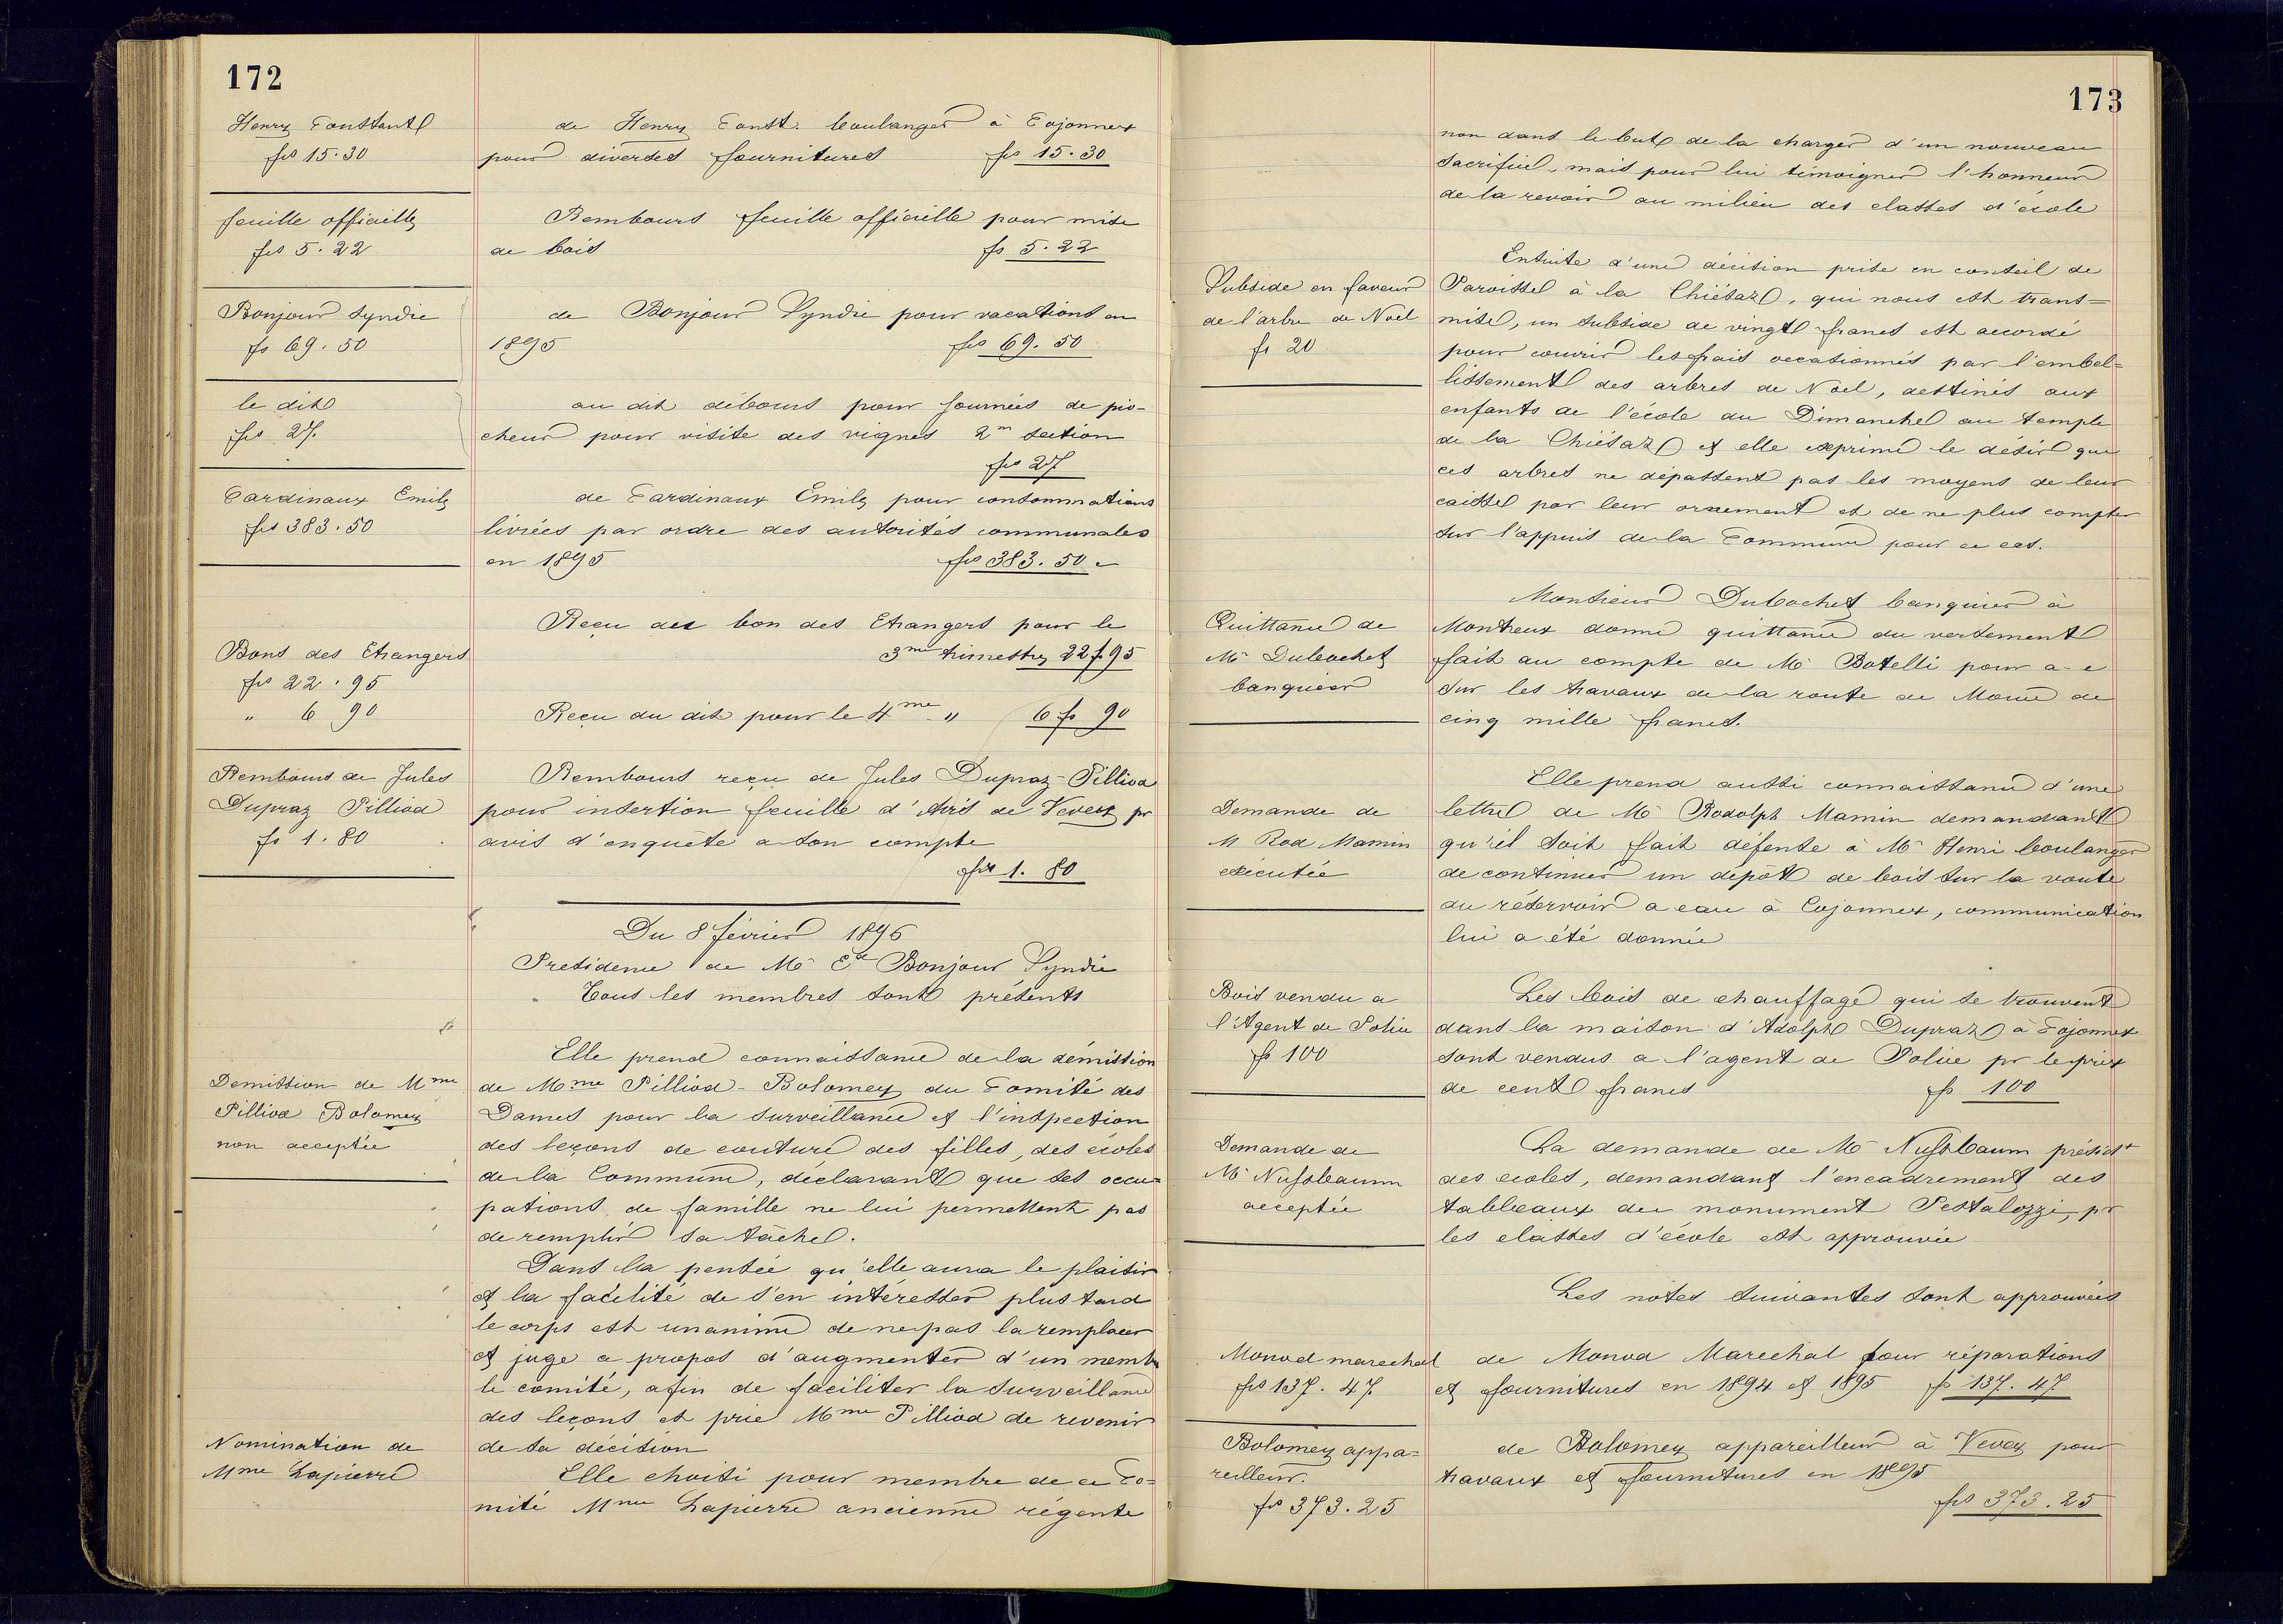 172
Henry Constant
frs 15.30
de Henry Const. boulanger à Cojonnex
pour diverses fournitures frs 15.30
feuille officielle
frs 5.22
Rembours feuille officielle pour mise
de bois fs 5.22
Bonjour Syndic
fs 69.50
de Bonjour Syndic pour vacations en
1895 frs 69.50
le dit
frs 27.
au dit débours pour journées de pio-
cheur pour visite des vignes 2m section
frs 27
Cardinaux Emile
frs 383.50
de Cardinaux Emile pour consommations
livrées par ordre des autorités communales
en 1895 frs 383.50
Bons des Etrangers
frs 22.95
" 6 90
Reçu des bon des Etrangers pour le
3me trimestre 22 f. 95
Reçu du dit pour le 4me " 6 fs 90
Rembours de Jules
Dupraz Pilliod
fs 1.80
Rembours reçu de Jules Dupraz-Pilliod
pour insertion feuille d'Avis de Vevey pr
avis d'enquète a son compte
frs 1.80
Du 8 février 1896
Presidence de Mr Ed Bonjour Syndic
Tous les membres sont présents
Demission de Mme
Pilliod Bolomey
non acceptée
Elle prend connaissance de la démission
de Mme Pilliod-Bolomey du Comité des
Dames pour la surveillance et l'inspection
des leçons de couture des filles, des écoles
de la Commune, déclarant que ses occu=
pations de famille ne lui permettent pas
de remplir sa tâche.
Dans la pensée qu'elle aura le plaisir
et la facilité de s'en intéresser plus tard
le corps est unanime de ne pas la remplacer
et juge a propos d'augmenter d'un membre
le comité, afin de faciliter la surveillance
des leçons et prie Mme Pilliod de revenir
de sa décision
Nomination de
Mme Lapierre
Elle choisi pour membre de ce Co=
mité Mme Lapierre ancienne régente
173
non dans le but de la charger d'un nouveau
sacrifice, mais pour lui témoigner l'honneur
de la revoir au milieu des classes d'école
Subside en faveur
de l'arbre de Noël
fr 20
Ensuite d'une décision prise en conseil de
Paroisse à la Chiésaz, qui nous est trans=
mise, un subside de vingt francs est accordé
pour couvrir les frais occasionnés par l'embel=
lissement des arbres de Noël, destinés aux
enfants de l'école du Dimanche au temple
de la Chiésaz et elle exprime le désir que
ces arbres ne dépassent pas les moyens de leur
caisse par leur ornement et de ne plus compter
sur l'appuis de la Commune pour ce cas.
Quittance de
Mr Dubochet
banquier
Monsieur Dubochet banquier à
Montreux donne quittance du versement
fait au compte de Mr Botelli pour a-c
sur les travaux de la route de Monée de
cinq mille francs.
Demande de
M Rod Mamin
exécutée
Elle prend aussi connaissance d'une
lettre de Mr Rodolph Mamin demandant
qu'il soit fait défense à Mr Henri boulanger
de continuer un depôt de bois sur la voute
du réservoir a eau à Cojonnex, communication
lui a été donnée
Bois vendu a
l'Agent de Police
fs 100
Les bois de chauffage qui se trouvent
dans la maison d'Adolphe Dupraz à Cojonnex
sont vendus a l'agent de Police pr le prix
de cent francs fs 100
Demande de
Mr Nussbaum
acceptée
La demande de Mr Nussbaum présidt
des ecoles, demandant l'encadrement des
tableaux du monument Pestalozzi, pr
les classes d'école est approuvée
Les notes suivantes sont approuvées
Monod marechal
frs 137.47
de Monod Marechal pour réparations
et fournitures en 1894 et 1895 fs 137.47
Bolomey appa=
reilleur.
frs 373.25
de Bolomey appareilleur à Vevey pour
travaux et fournitures en 1895
frs 373.25